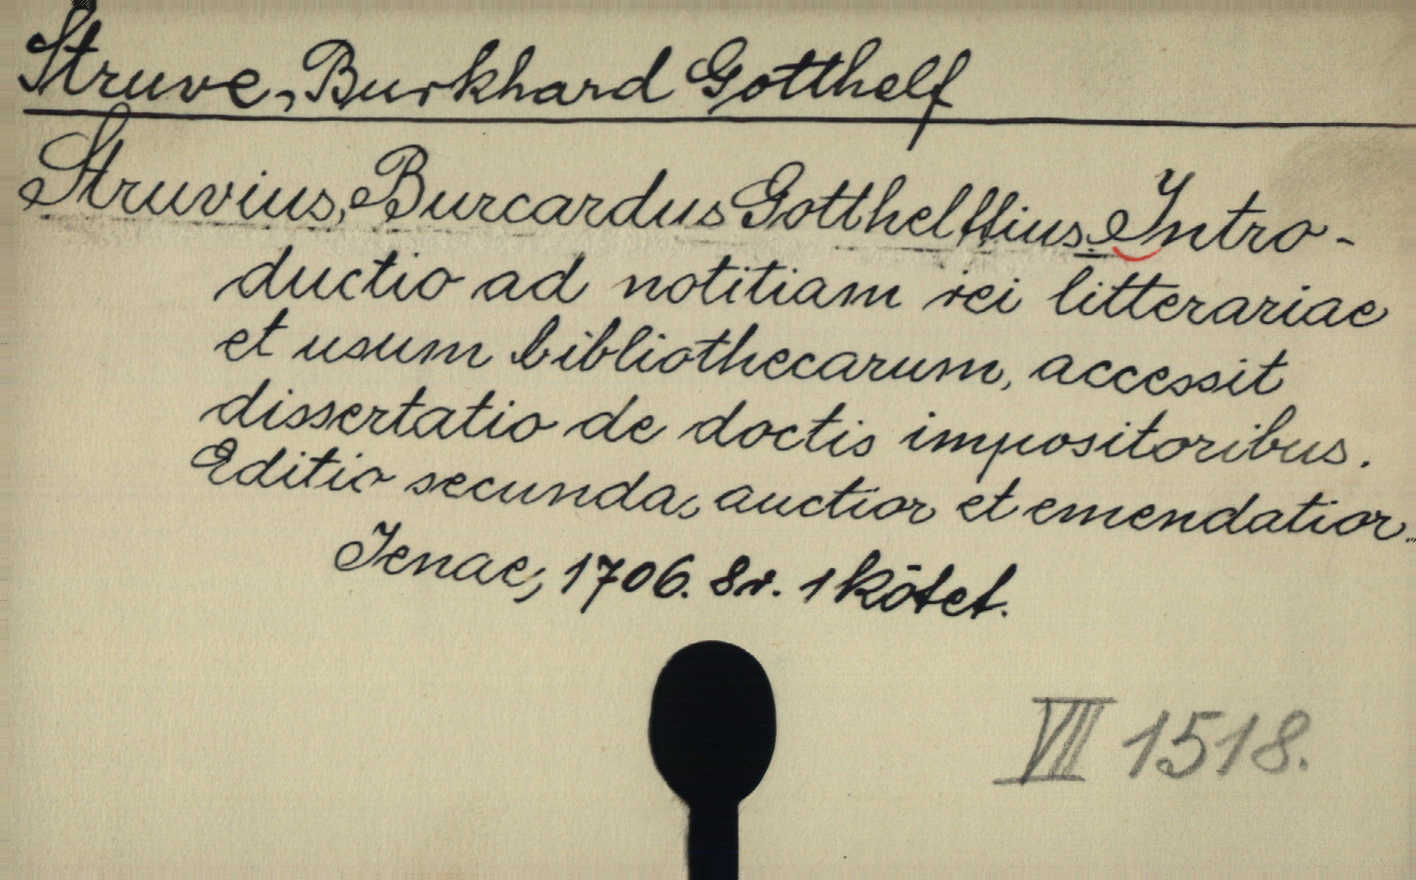 Struve, Burkhard Gotthelf
Struvius, Burcardus Gotthelffius. Intro-
ductio ad notitiam rei litterariae
et usum bibliothecarum, accessit
dissertatio de doctis impositoribus.
Editio secunda, auctior et emendatior.
Jenae, 1706. 8r. 1 kötet.
VII 1518.